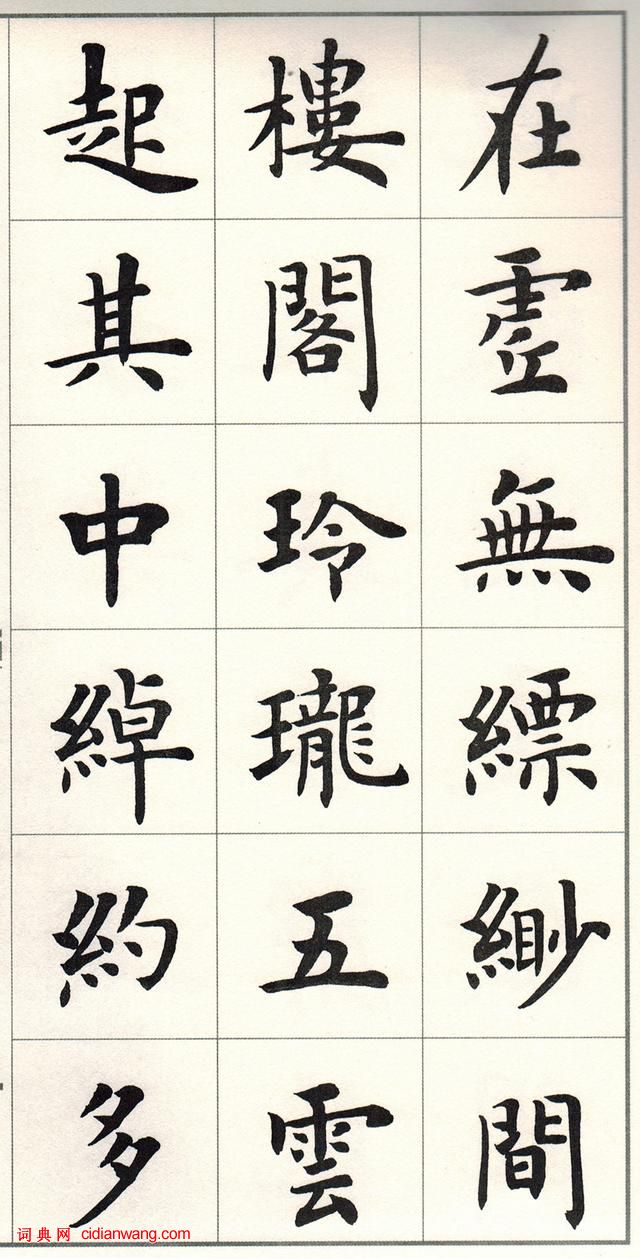 在虛無縹緲間
樓閣玲瓏五雲
起其中綽約多
词典网 cidianwang.com